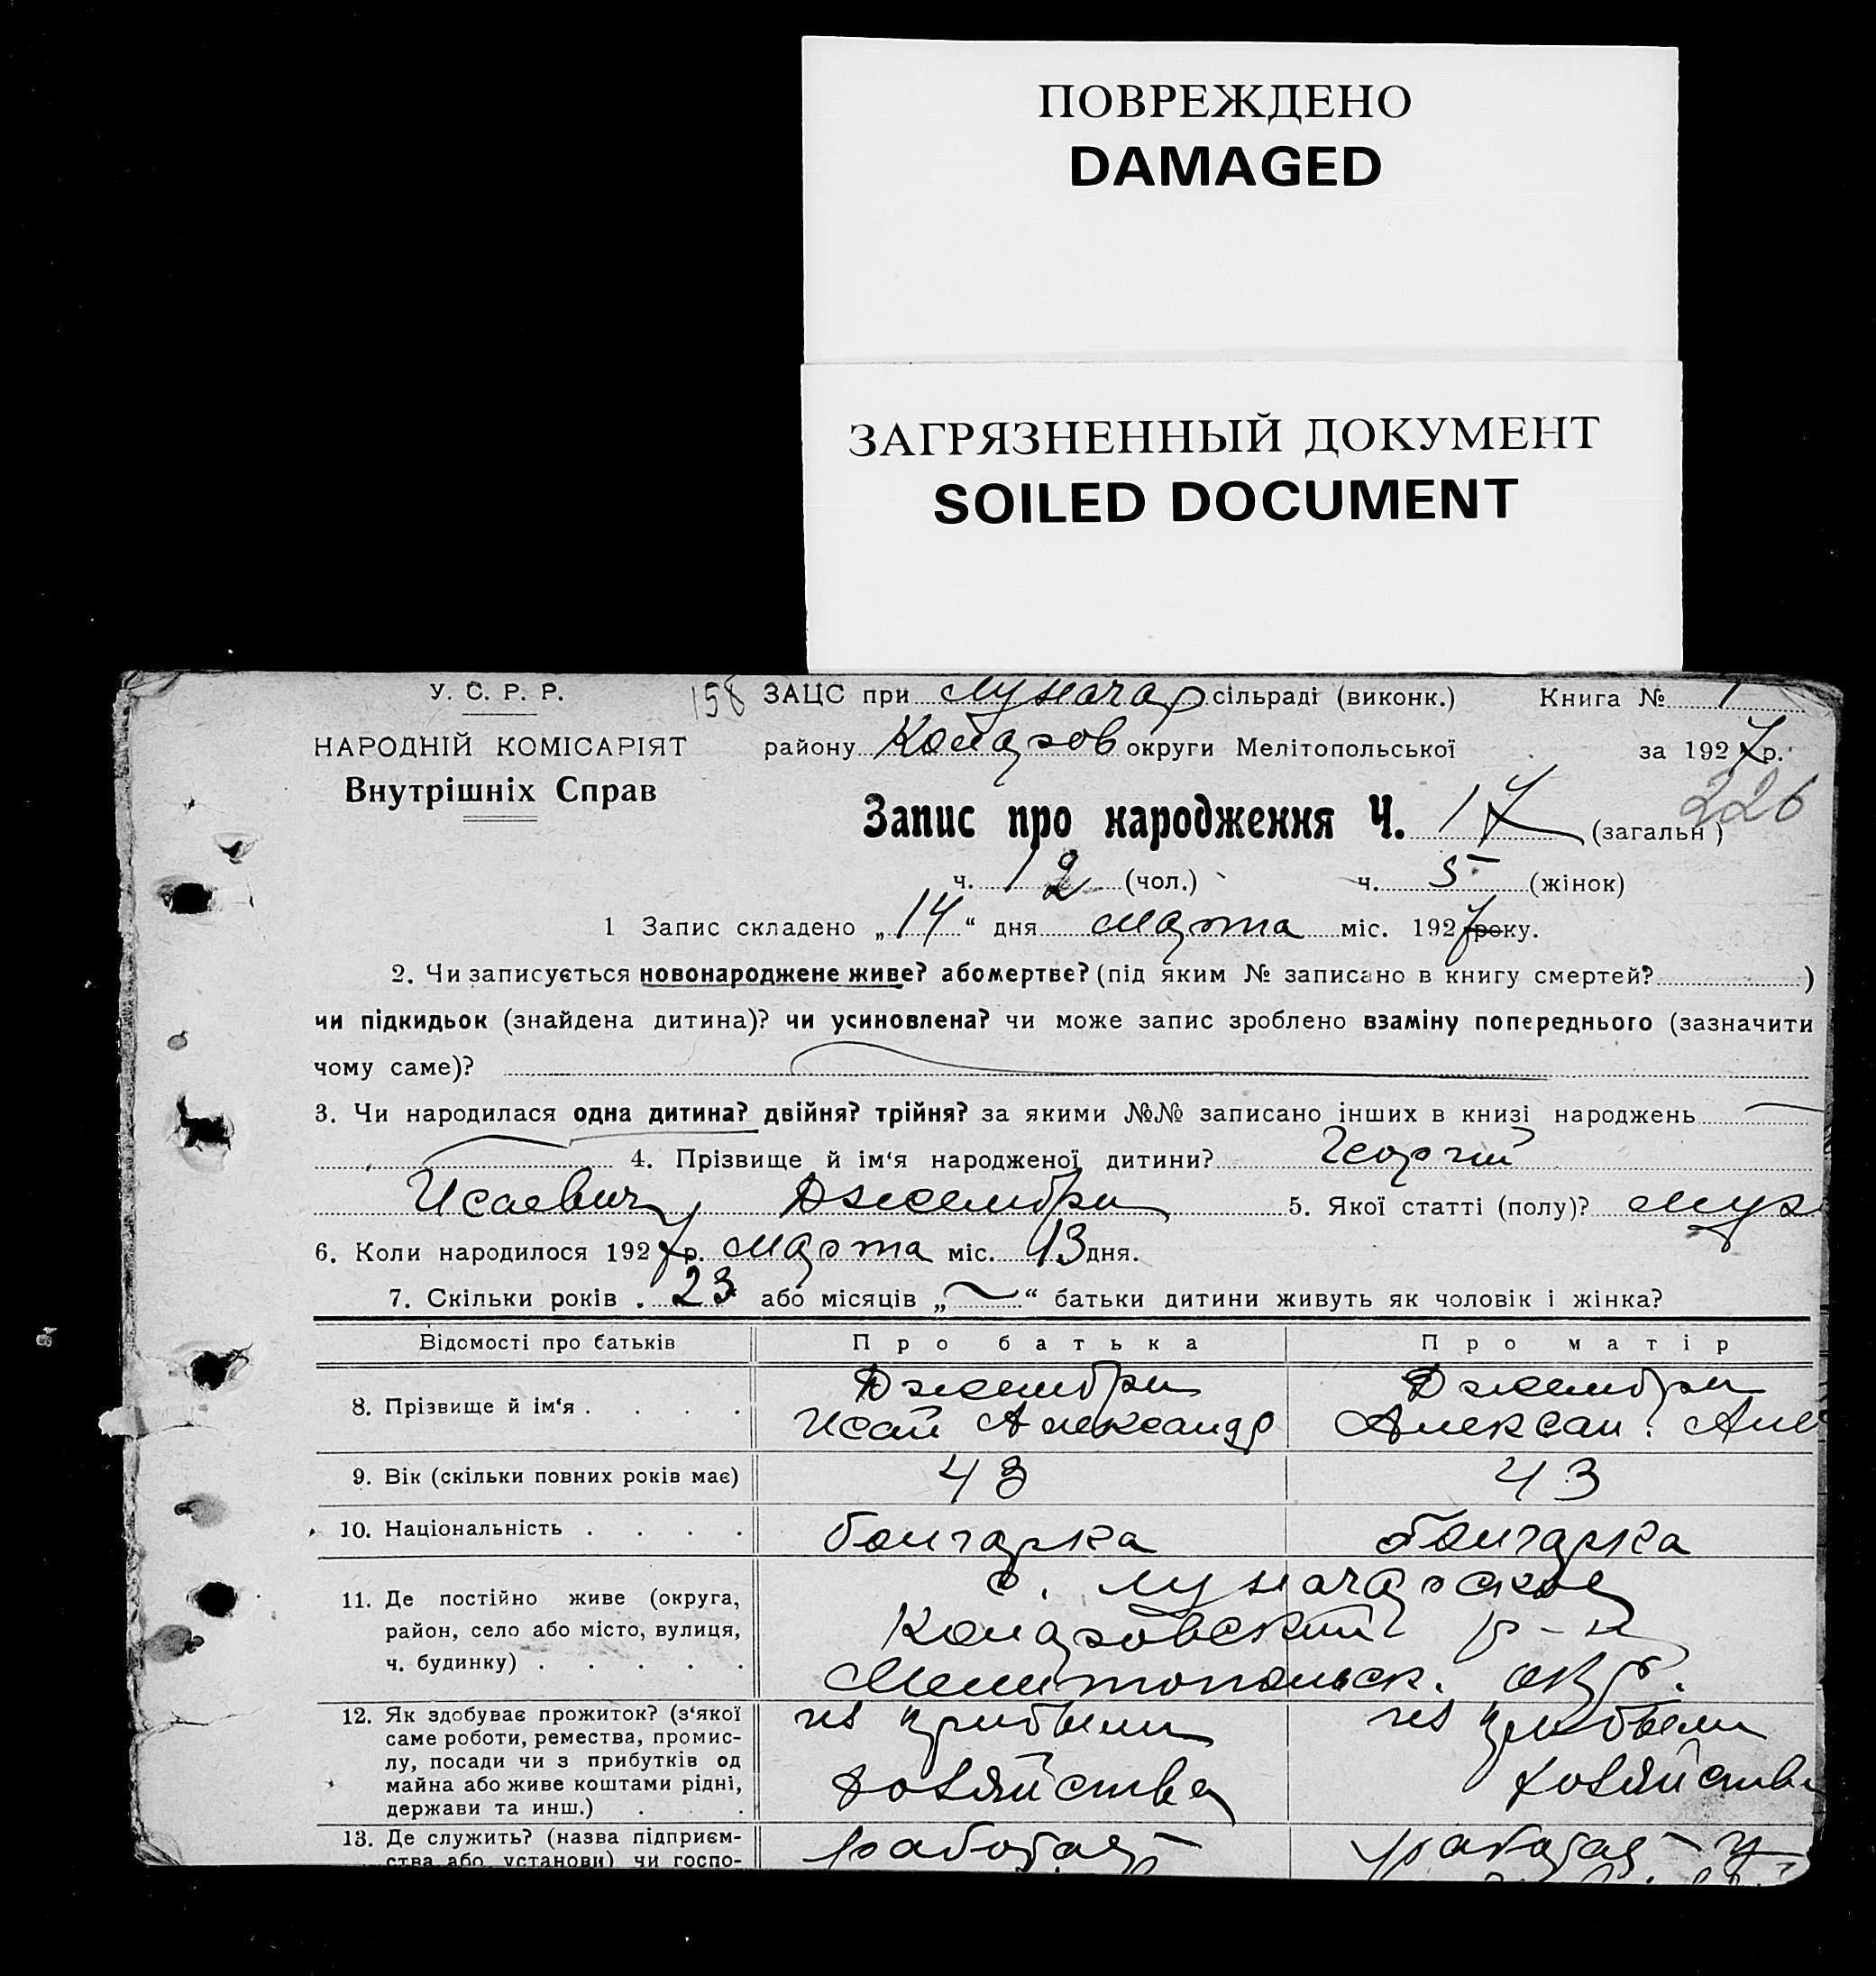 ПОВРЕЖДЕНО
DAMAGED
ЗАГРЯЗНЕННЫЙ ДОКУМЕНТ
SOILED DOCUMENT
У. С. Р. Р.
НАРОДНІЙ КОМІСАРІЯТ
Внутрішніх Справ
158 ЗАЦС при Луначар сільраді (виконк.) Книга № 1
району Коларов округи Мелітопольської за 1927 р.
226
Запис про народження Ч. 17 (загальн )
ч. 12 (чол.) ч. 5 (жінок)
1 Запис складено „14“ дня марта міс. 1927 року.
2. Чи записується новонароджене живе? або мертве? (під яким № записано в книгу смертей? )
чи підкидьок (знайдена дитина)? чи усиновлена? чи може запис зроблено взаміну попереднього (зазначити
чому саме)?
3. Чи народилася одна дитина? двійня? трійня? за якими №№ записано інших в книзі народжень
4. Прізвище й ім‘я народженої дитини? Георгий
Исаевич Джелебри 5. Якої статті (полу)? муж
6. Коли народилося 1927 р. марта міс. 13 дня.
7. Скільки років 23 або місяців „ “ батьки дитини живуть як чоловік і жінка?
Відомості про батьків Про батька Про матір
8. Прізвище й ім‘я . . . . Джелебри Джелебри
Исай Александр Алексан.
9. Вік (скільки повних років має) 43 43
10. Національність . . . . болгарка болгарка
11. Де постійно живе (округа, с. Луначарское
район, село або місто, вулиця, Коларовский р-н
ч. будинку) . . . . . Мелитопольск. окр.
12. Як здобуває прожиток? (з‘якої из прибыли из прибыли
саме роботи, ремества, промис-
лу, посади чи з прибутків од
майна або живе коштами рідні, хозяйства хозяйства
держави та инш.) . .
13. Де служить? (назва підприєм- работая
ства або установи) чи госпо-